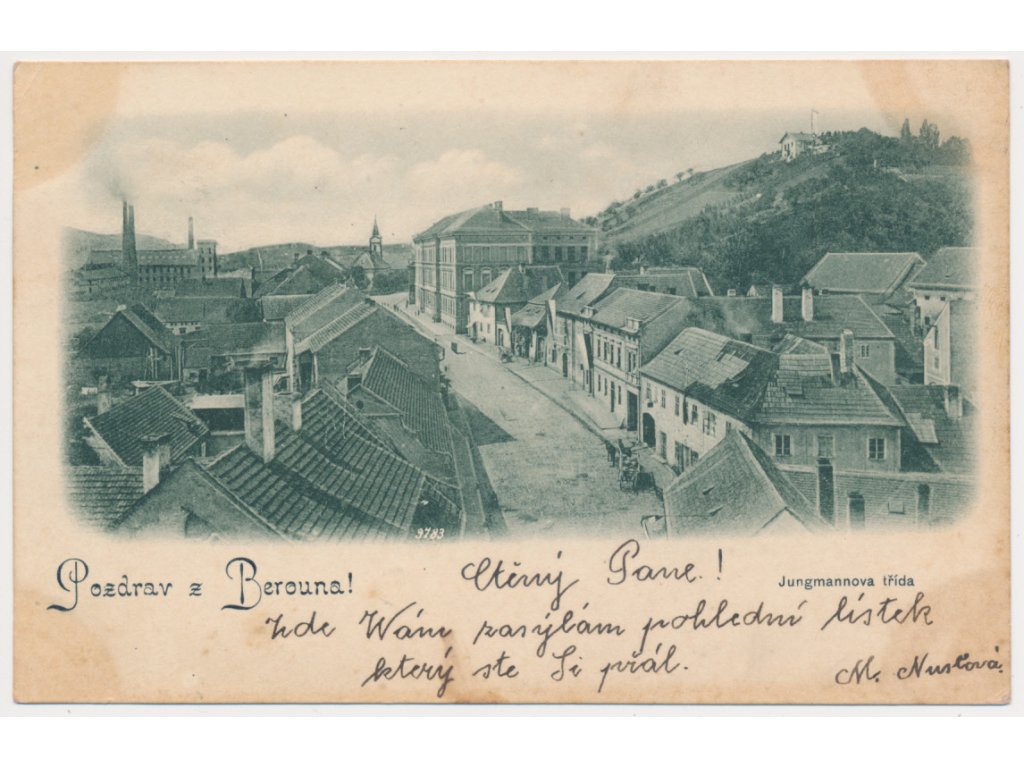 9783
Pozdrav z Berouna!
Ctěný Pane!
Jungmannova třída
zde Wám zasýlám pohlední lístek
který ste Si přál.
M. Nusťová.